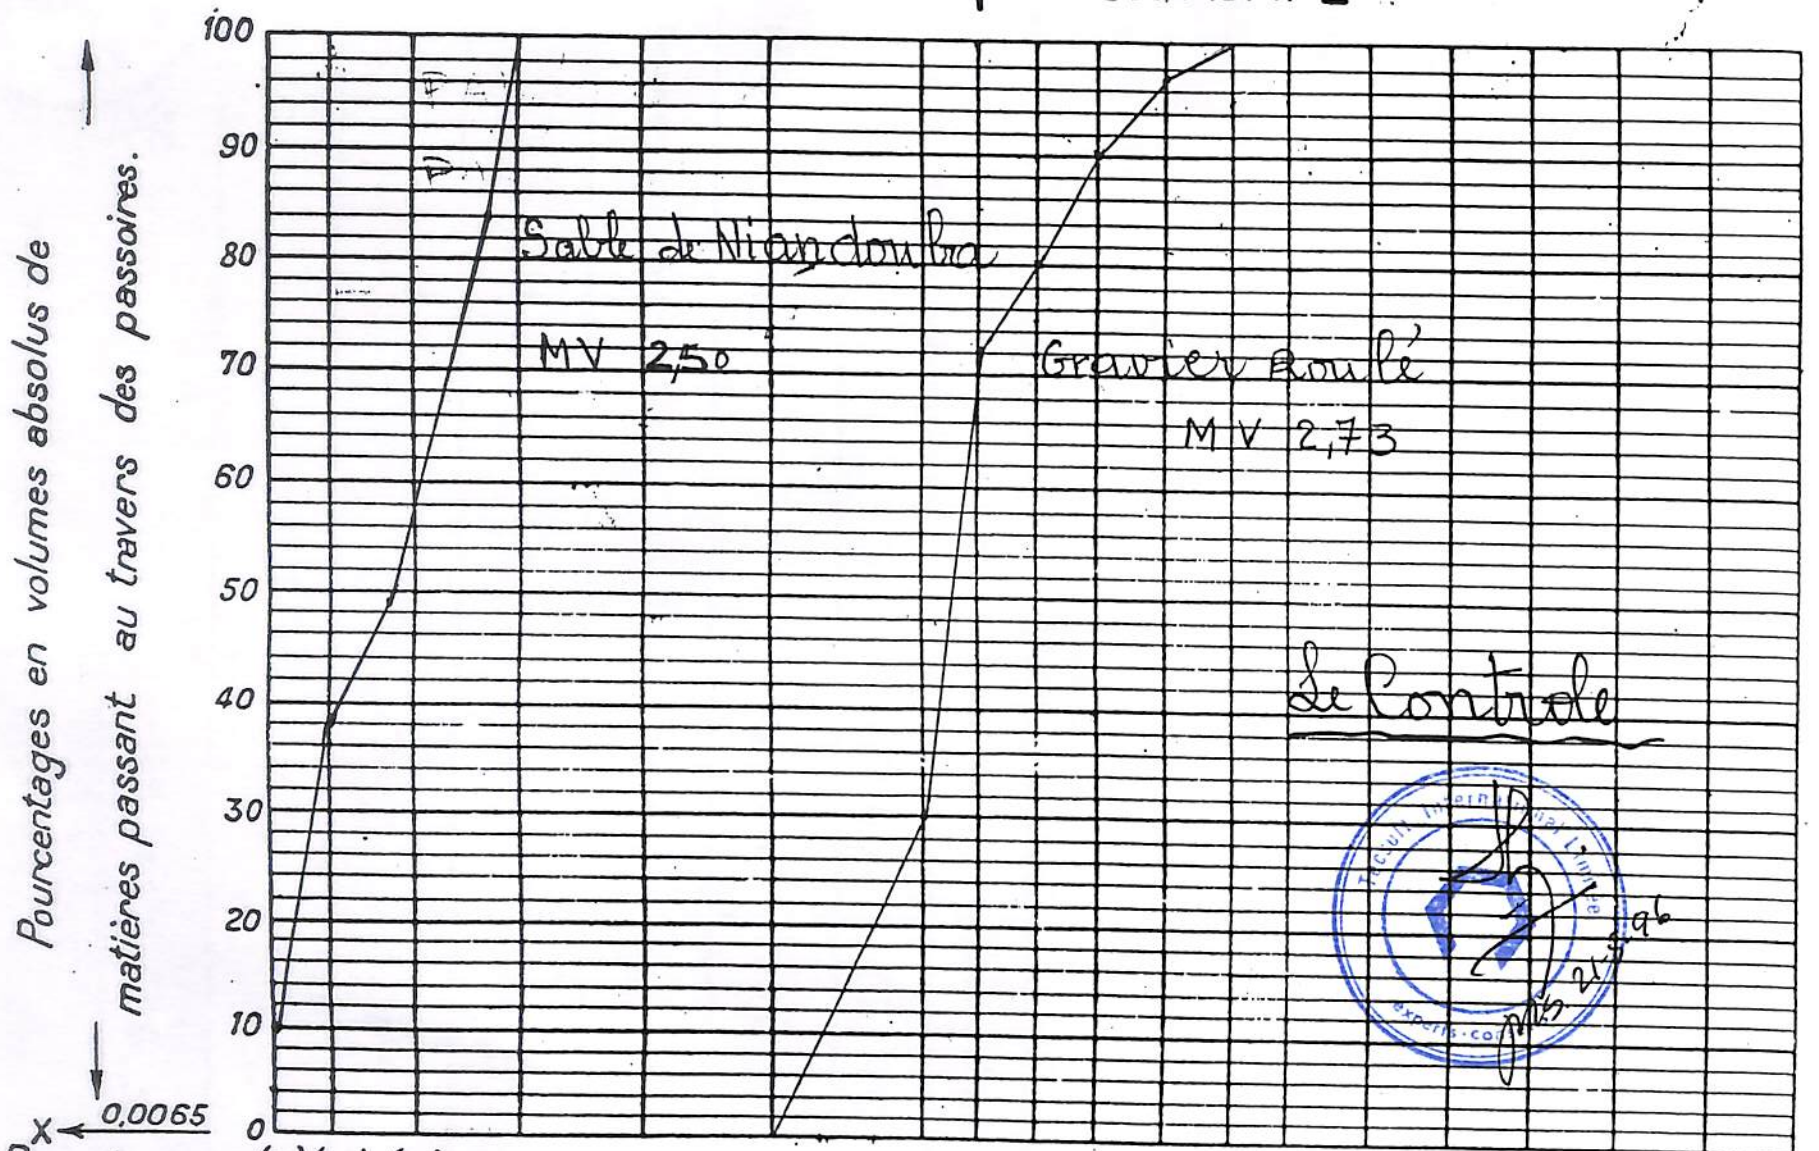 Pourcentages en volumes absolus de
matières passant au travers des passoires.
100
90
80
70
60
50
40
30
20
10
0
0,0065
x
Sable de Niandouba
MV 2,50
Gravier Roulé
MV 2,73
Le Controle
Tecsult International Limitée
experts-